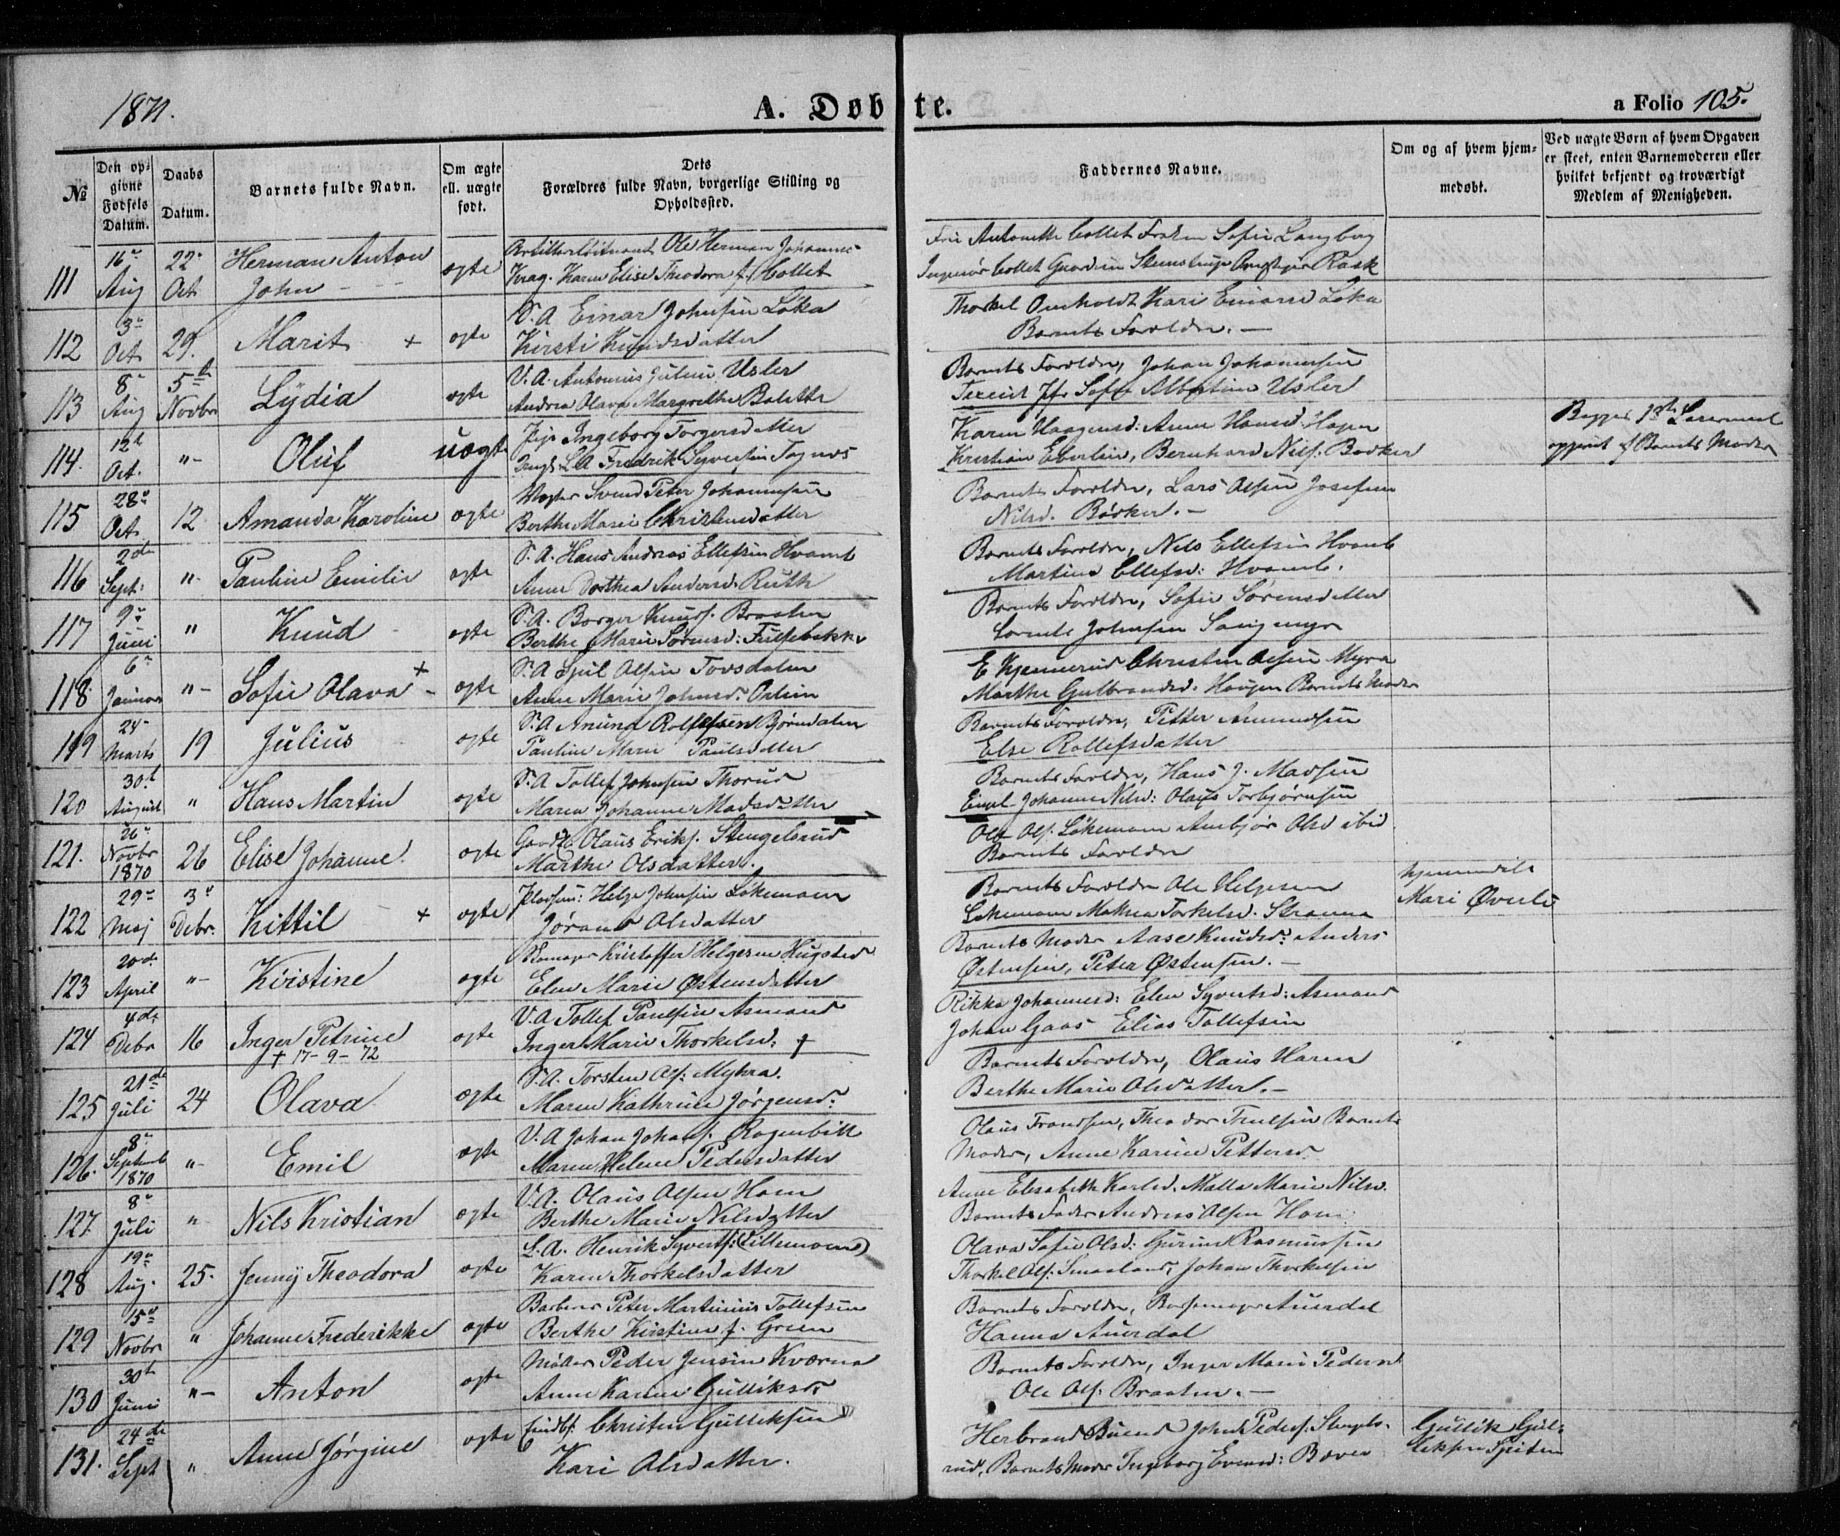 1871.
A. Døbte.
a Folio 105.
№
Den opgivne Fødsels Datum.
Daabs Datum.
Barnets fulde Navn.
Om ægte ell. uægte født.
Dets Forældres fulde Navn, borgerlige Stilling og Opholdssted.
Faddernes Navne.
Om og af hvem hjemmedøbt.
Ved uægte Børn af hvem Opgaven er skeet, enten Barnemoderen eller hvilket bekjendt og troværdigt Medlem af Menigheden.
111 16de Aug 22de Oct Herman Anton John ægte Ole Herman Johannes Krag. Karen Elise Theodora f. Collet
Antonette Collet Frøken Sofie Langberg
Ingeniør Collet Rask
112 3de Oct 29. Marit + ægte S.A. Einar Johnsen Løka
Kirsti Knudsdatter
Thorkel Omholdt Kari Løka
Barnets Forældre. —
113 8de Aug 5te Novbr Lydia ægte V.A. Antonius Julius Usler
Andrea Olava Margrethe Bolette
Barnets Forældre, Johan Johannesen
Sofie Albertine Usler
114. 12te Oct. "— Oluf uægte Pige Ingeborg Torgersdatter
Ungk. L.A. Fredrik Syversen Tognes
Karen Haagensd: Anne Hansd
Kristian Eberlin, Bernhard Nils. Bødker
Begges 1ste Leiermaal
opgivet af Barnets Moder
115 28de Oct 12 Amanda Karoline ægte Svend Peter Johannesen
Berthe Marie Christensdatter
Barnets Forældre, Lars Olsen Josefine
Nilsd. Bødker. —
116 2de Sept: "— Pauline Emilie ægte S.A. Hans Andreas Ellefsen Hvamb
Anne Dorthea Andersd. Ruth
Barnets Forældre, Nils Ellefsen Hvamb
Martine Ellefsd: Hvamb.
117 9de Juni " Knud ægte S.A. Borger Knuds. Braaten
Berthe Marie Sørensd:
Barnets Forældre, Sofie Sørensdatter
Johnsen Langmyr
118. 6te Januar "— Sofie Olava + ægte S.A. Olsen Tovsdalen
Anne Marie Johnsd.
E Kjennerud Christen Olsen Myra
Marthe Gulbrandsd. Haugen Barnets Moder
119 24de Marts 19 Julius ægte S.A. Amund Rollefsen Bjørndalen
Pauline Marie Paulsdatter
Barnets Forældre, Petter Amundsen
Else Rollefsdatter
120 30te August " Hans Martin ægte S.A. Tollef Johnsen Thorud
Maren Johanne Madsdatter
Barnets Forældre, Hans J. Madsen
Johanne Nilsd: Olaus Torbjørnsen
121. 26de Novbr 1870 26 Elise Johanne. ægte Olaus Eriks. Stengelsrud
Marthe Olsdatter.
Ole Ols. Løkemoen Ambjør Olsd ibid
Barnets Forældre
122 29de Maj 3de Debr. Kittil + ægte Pladsm: Helge Johnsen Løkemoen
Jøran Olsdatter
Barnets Forældre Ole Helgesen
Løkemoen Torkelsd. Stranna
Mari Øverli
123 20de April "— Kirstine ægte Kristoffer Helgesen Hugsted
Elen Marie Østensdatter
Barnets Moder Aase Knudsd: Anders
Østensen, Peter Østensen. —
124 4de Debr 16 Inger Petrine
+ 17-9-72 ægte V.A. Tollef Paulsen Asmand
Inger Marie Thorkelsd: †
Rikka Johannesd: Elen Syvertsd: Asmand
Johan Gaas Elias Tollefsen
125 21de Juli 24 Olava ægte S.A. Torsten Ols: Myhra.
Maren Kathrine Jørgensd:
Barnets Forældre, Olaus Haren
Berthe Marie Olsdatter. —
126. 8de Septemb 1870 "— Emil ægte V.A. Johan Johans.
Maren Helene Pedersdatter
Olaus Fransen, Theodor Truelsen Barnets
Moder, Anne Karine Pettersd
127. 8de Juli " Nils Kristian ægte V.A. Olaus Olsen Hom
Berthe Marie Nilsdatter
Anne Elisabeth Karlsd. Malla Marie Nilsd.
Barnets Fader Andreas Olsen Hom
128 19de Aug. 25. Jenny Theodora ægte L.A. Henrik Syverts: (Lillemoen)
Karen Thorkelsdatter
Olava Sofie Olsd: Rasmussen
Thorkel Ols. Smaaland, Johan Thorkelsen
129 15de Novbr " Johanne Frederikke ægte Peter Martinius Tollefsen
Berthe Kirstine f. Green
Barnets Forældre, Auerdal
Hanna Auerdal
130 30te Juni "— Anton ægte Møller Peder Jensen Kværna
Anne Karine Gulliksd.
Barnets Forældre, Inger Marie Pedersd
Ole Ols. Braaten. —
131. 24de Sept " Anne Jørgine ægte Christen Gulliksen
Kari Olsdatter.
Herbrand John Peders. Stengelsrud, Barnets Moder Ingeborg Evensd: Bover
Gullik Gulliksen